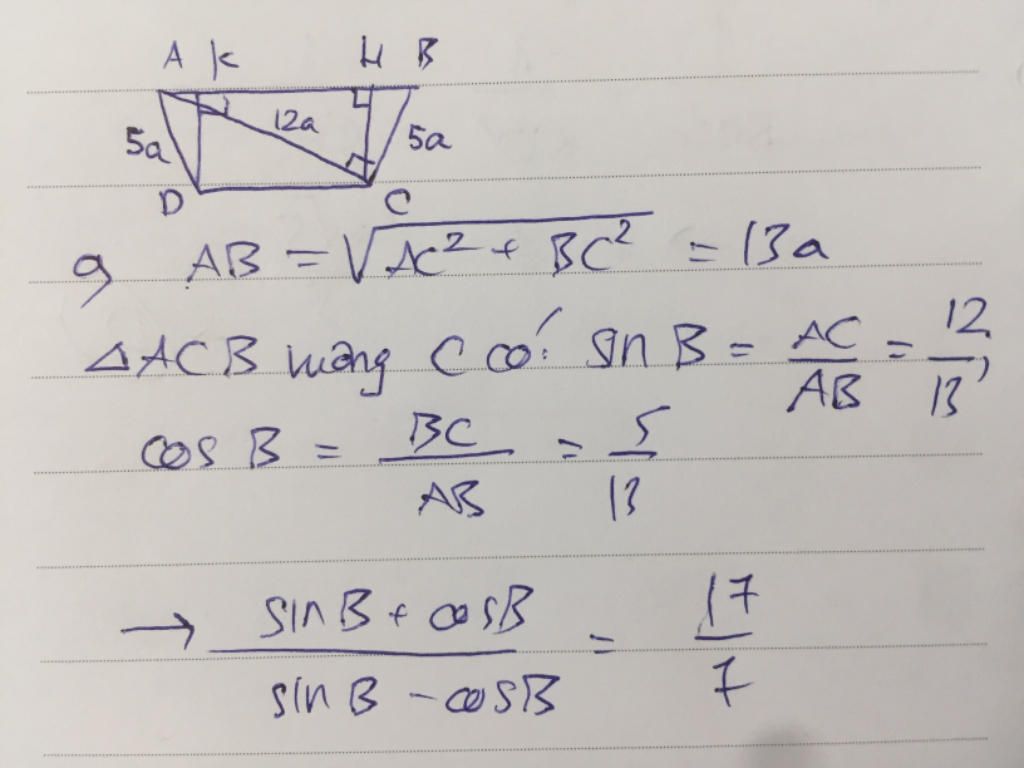 A K H B
5a 12a 5a
D C
a, AB = √(AC² + BC²) = 13a
△ACB vuông C có: sin B = AC/AB = 12/13,
cos B = BC/AB = 5/13
→ (sin B + cos B)/(sin B - cos B) = 17/7